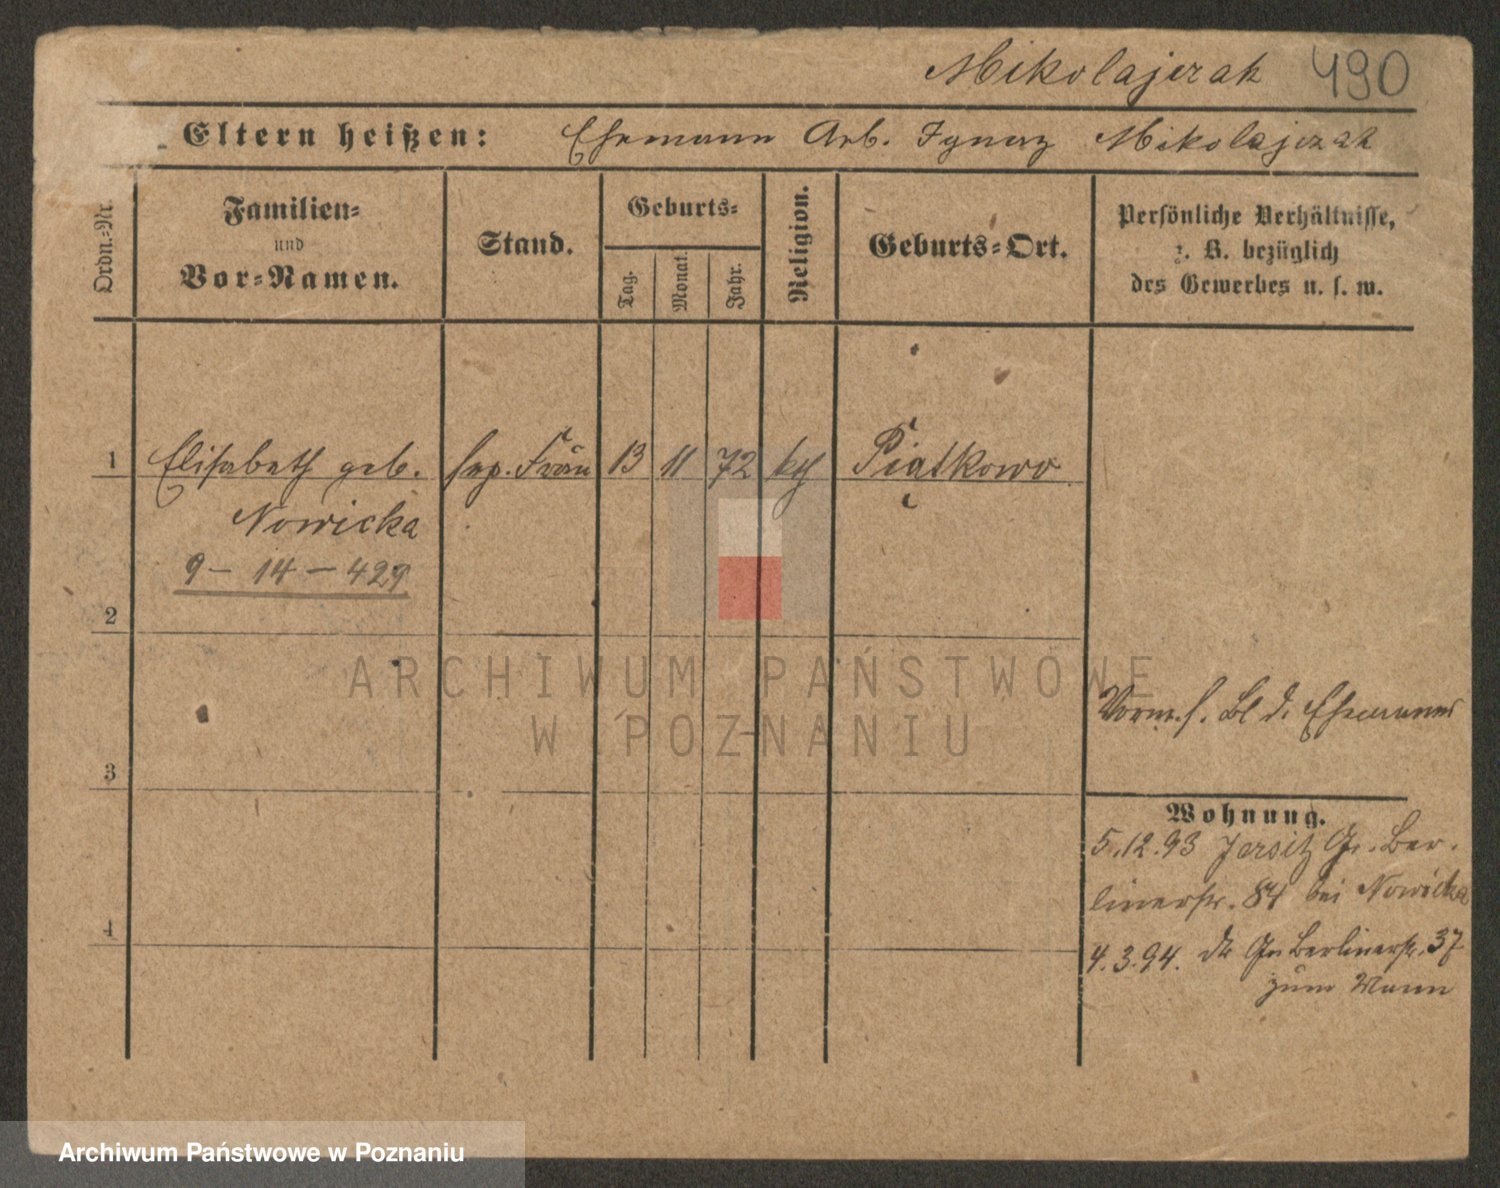 Mikolajczak 490
Eltern heißen: Ehemann Arb. Ignaz Mikolajczak
Ordn.-Nr.
Familien- und Vor-Namen.
Stand.
Geburts-
Tag. Monat. Jahr.
Religion.
Geburts-Ort.
Persönliche Verhältnisse,
z. B. bezüglich
des Gewerbes u. s. w.
1 Elisabeth geb. sep. Frau 13 11 72 kth Piatkowo
Nowicka
9 – 14 – 429
2
ARCHIWUM PAŃSTWOWE
W POZNANIU
Vorm. s. Bl d. Ehemannes
3
Wohnung.
5.12.93 Jersitz Gr. Ber-
linerstr. 84 bei Nowicka
4
4.3.94. Gr Berlinerstr. 37
zum Mann
Archiwum Państwowe w Poznaniu